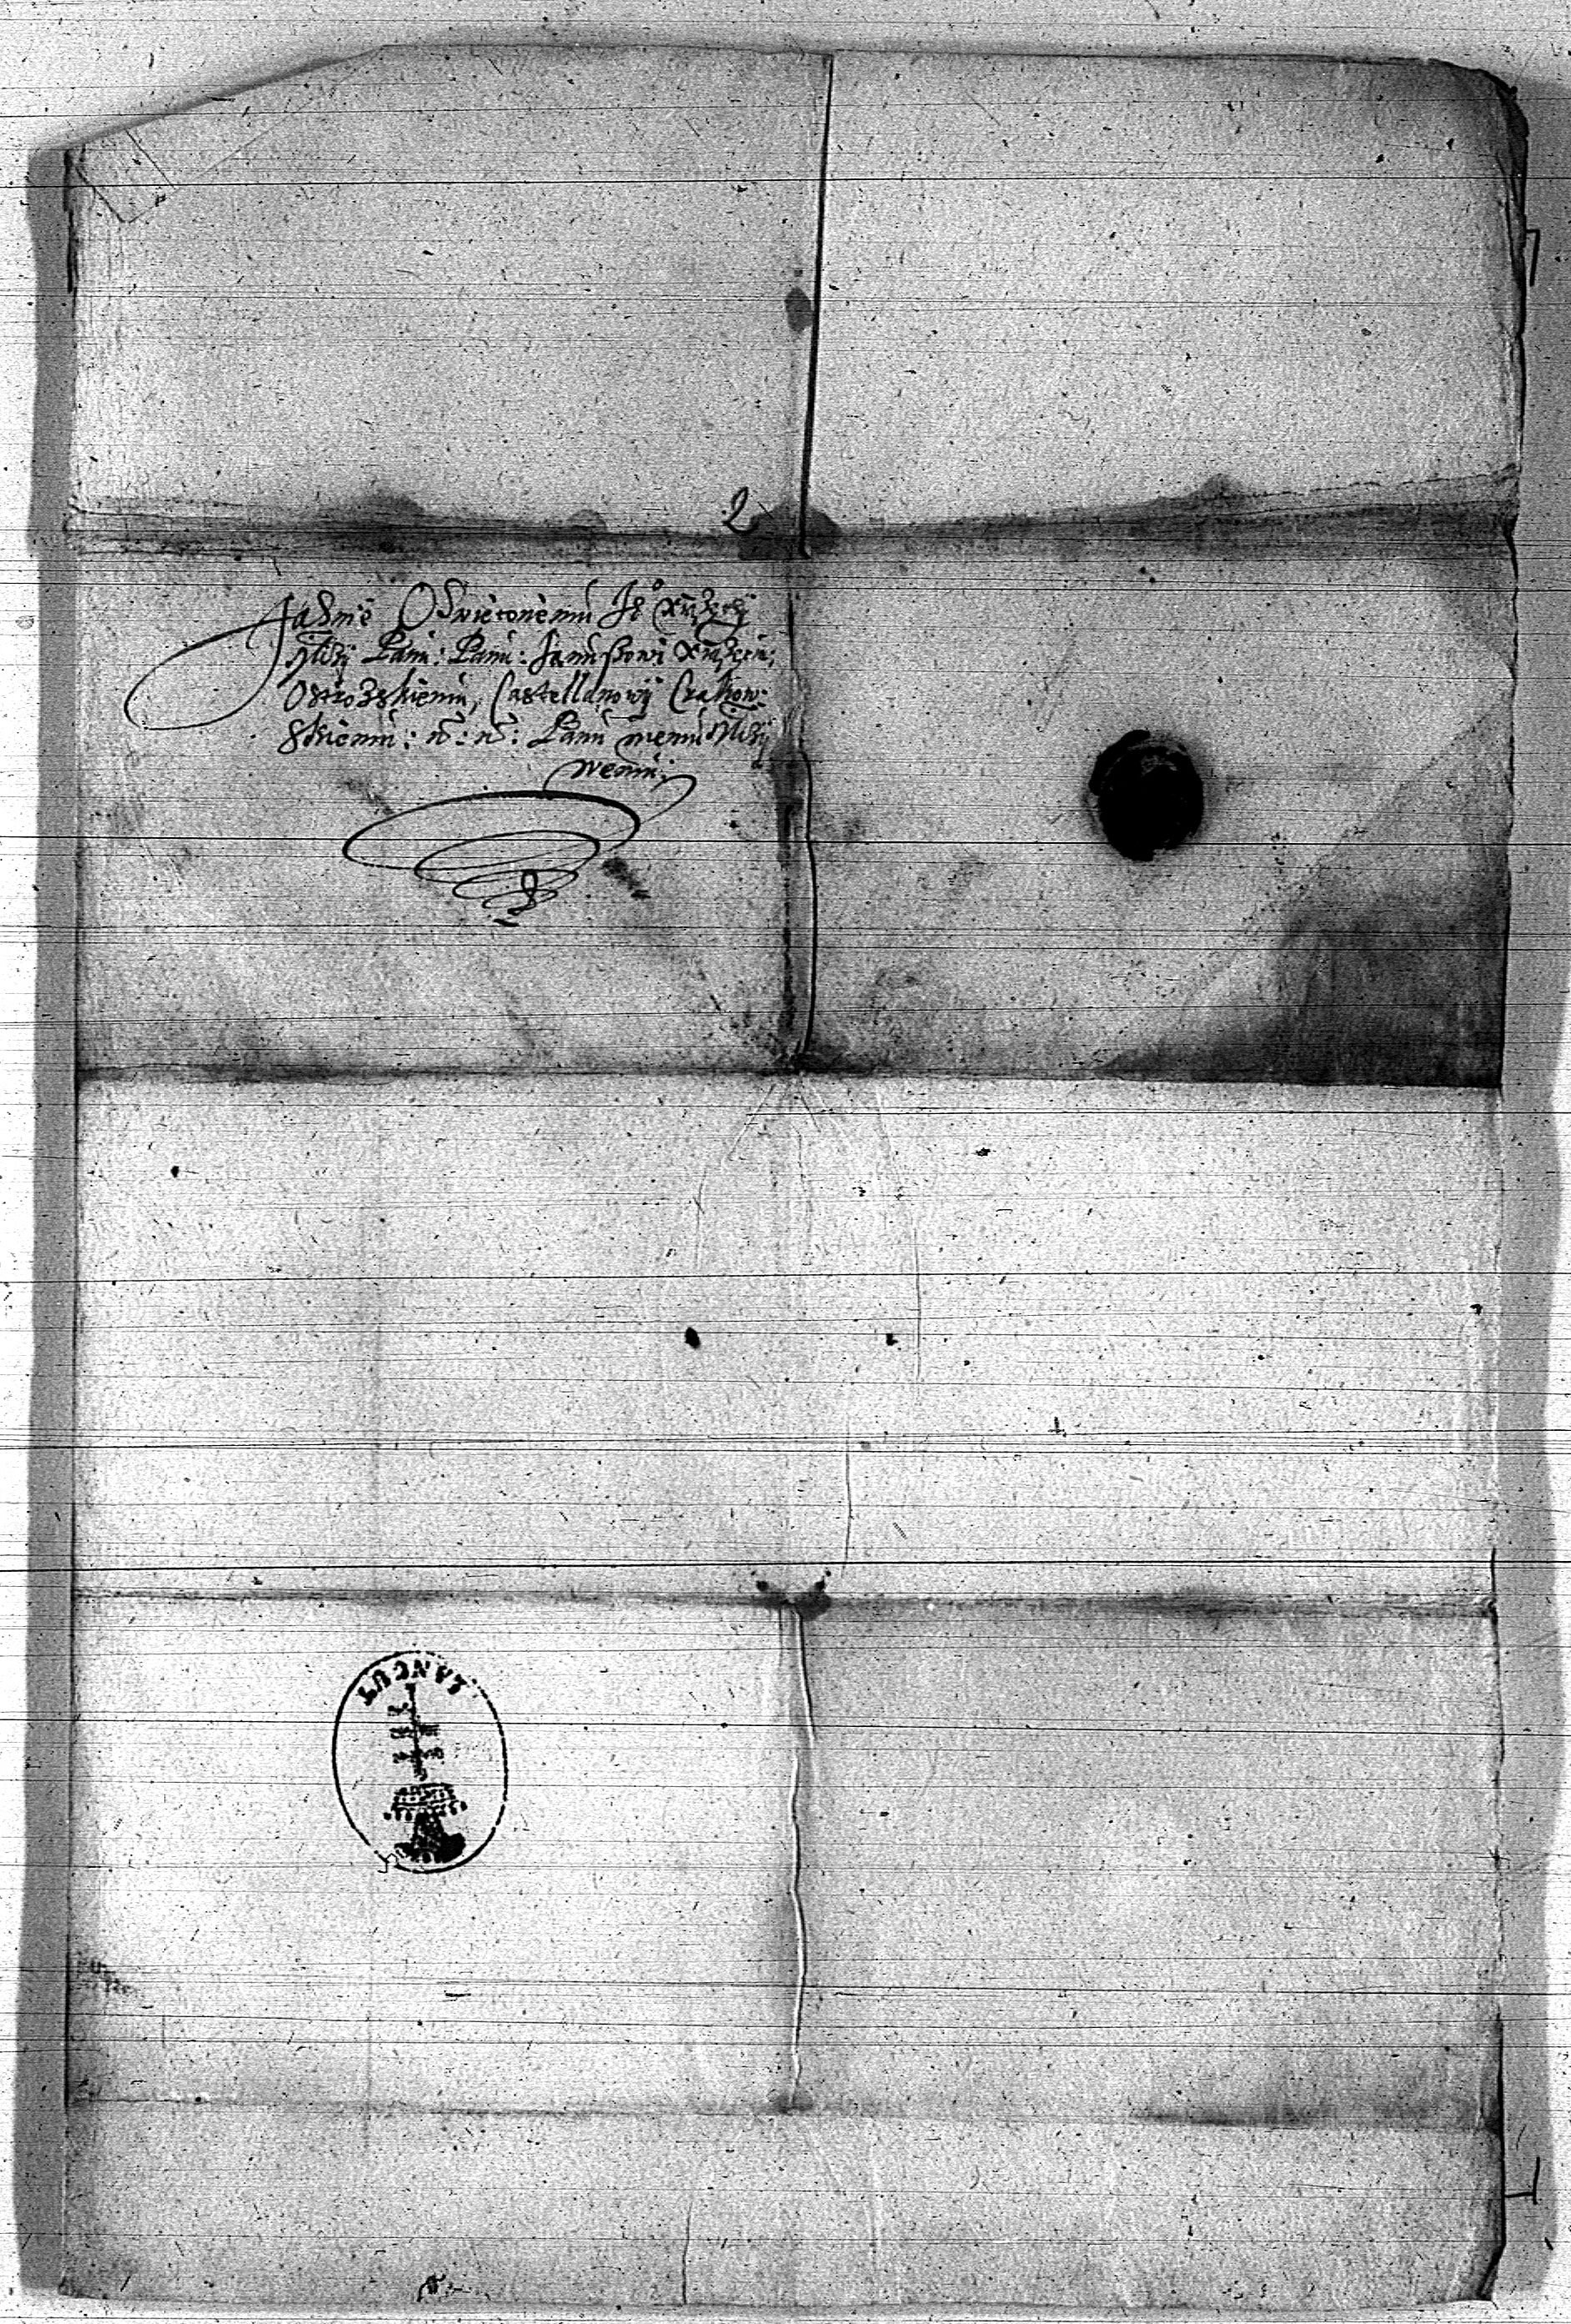 2
Jasnie Oswieconemu Je° Xiążęciu
Panu: Panu: Januszowi Xiążęciu:
Ostrozskiemu, Castellanowÿ Crakow:
skiemu: n: n: Panu memu Miłỹ
wemu:
ŁAŃCUT